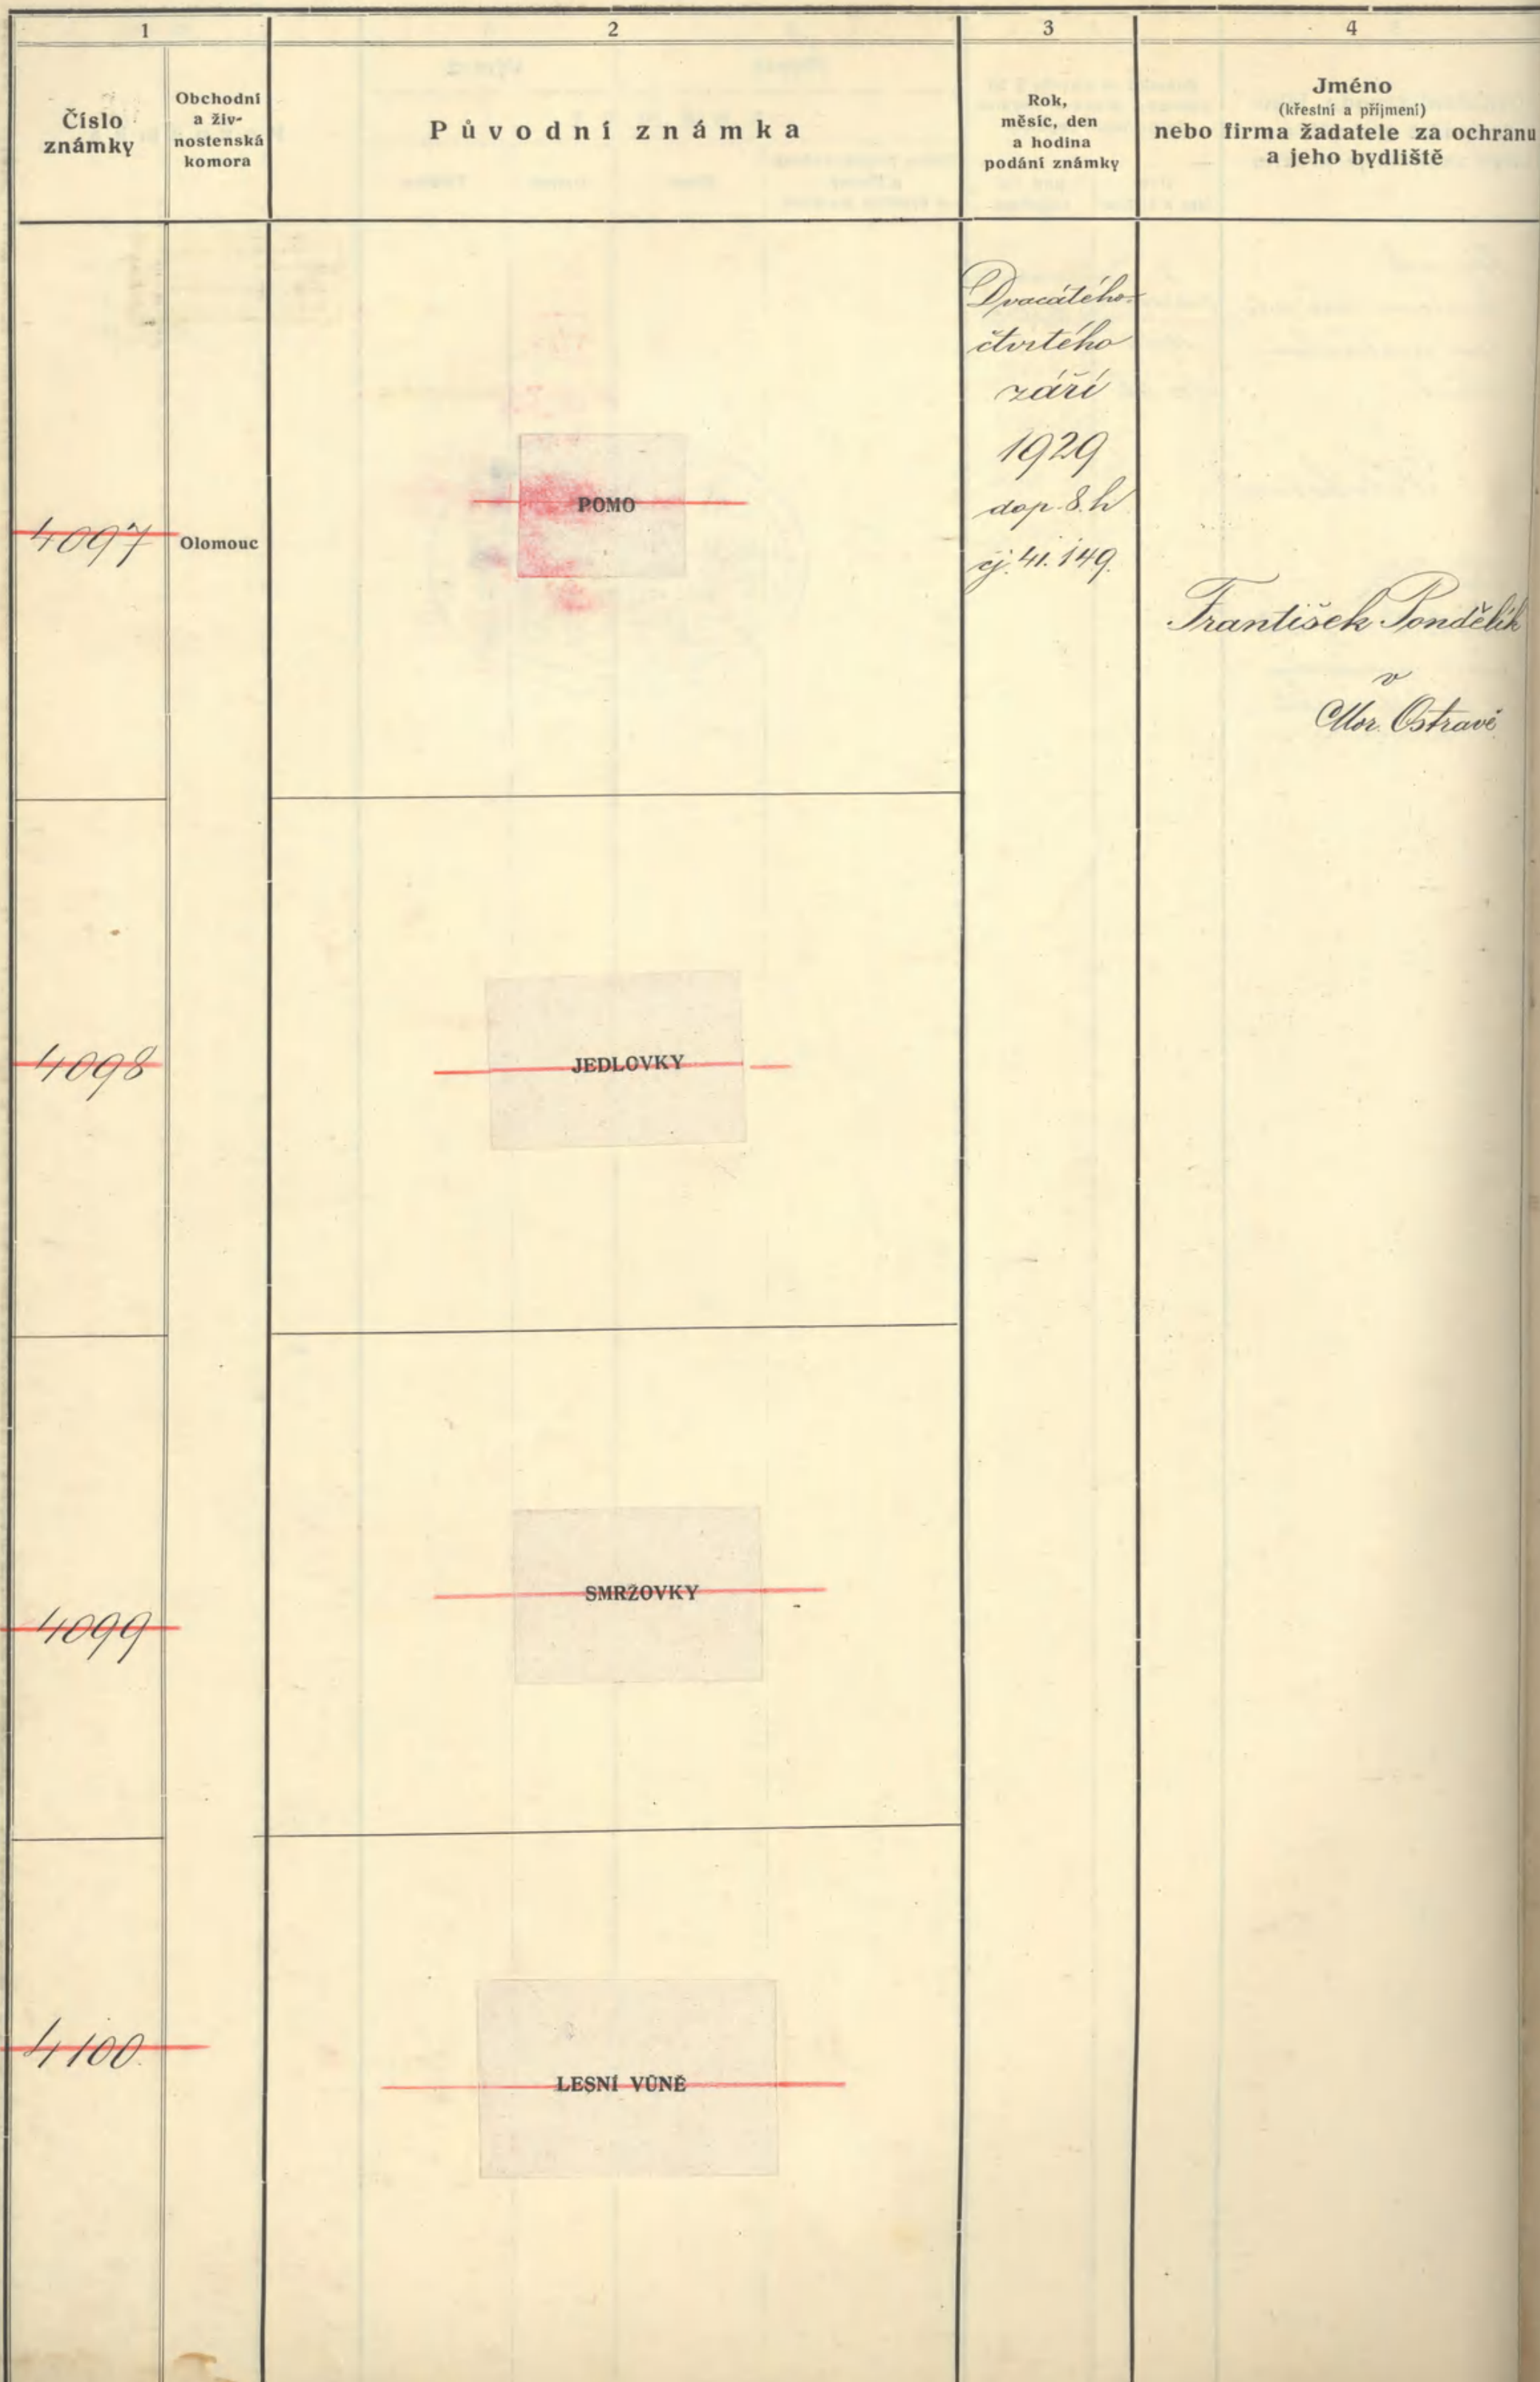 1
2
3
4
Číslo
známky
Obchodní
a živ-
nostenská
komora
Původní známka
Rok,
měsíc, den
a hodina
podání známky
Jméno
(křestní a příjmení)
nebo firma žadatele za ochranu
a jeho bydliště
4097
Olomouc
POMO
Dvacátého-
čtvrtého
září
1929
dop. 8. h
čj. 41.149.
František Pondělík
v
Mor. Ostravě
4098
JEDLOVKY
4099
SMRŽOVKY
4100.
LESNÍ VŮNĚ